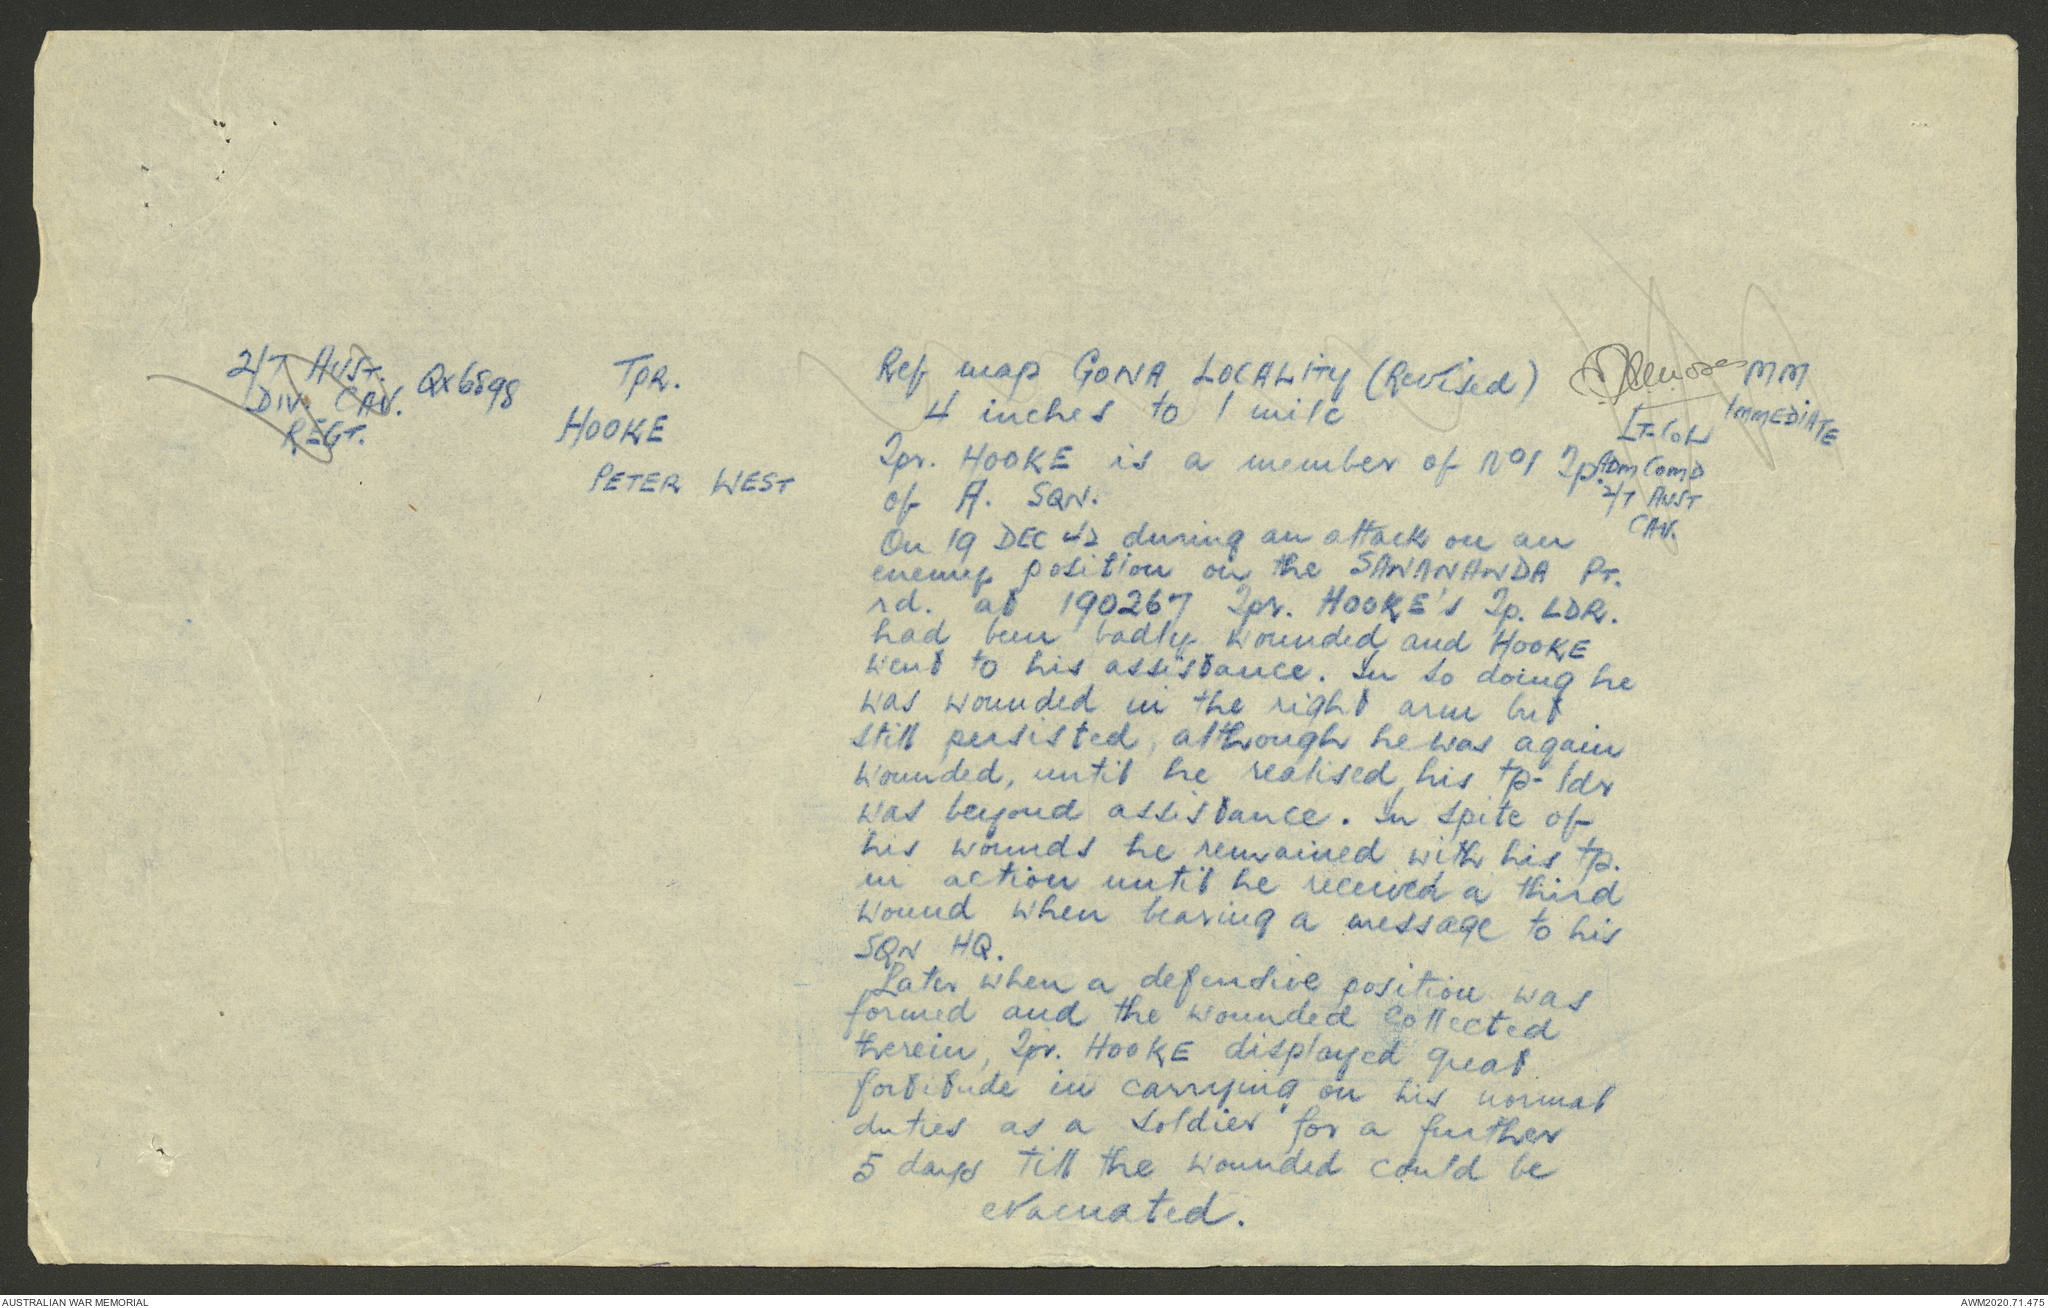 2/7 AUST.
DIV. CAV.
REGT.
QX6898
TPR.
HOOKE
PETER WEST
Ref map GONA LOCALITY (Revised)
4 inches to 1 mile
Tpr. HOOKE is a member of No1 Tp.
of A. SQN.
On 19 DEC 42 during an attack on an
enemy position on the SANANANDA PT.
rd. at 190267 Tpr. HOOKE's Tp. LDR.
had been badly wounded and HOOKE
went to his assistance. In so doing he
was wounded in the right arm but
still persisted, although he was again
wounded, until he realised his tp-ldr
was beyond assistance. In spite of
his wounds he remained with his tp.
in action until he received a third
wound when bearing a message to his
SQN HQ.
Later when a defensive position was
formed and the wounded collected
therein, Tpr. HOOKE displayed great
fortitude in carrying on his normal
duties as a soldier for a further
5 days till the wounded could be
evacuated.
LT-COL
ADM COMD
2/7 AUST
CAV.
MM
IMMEDIATE
AUSTRALIAN WAR MEMORIAL
AWM2020.71.475